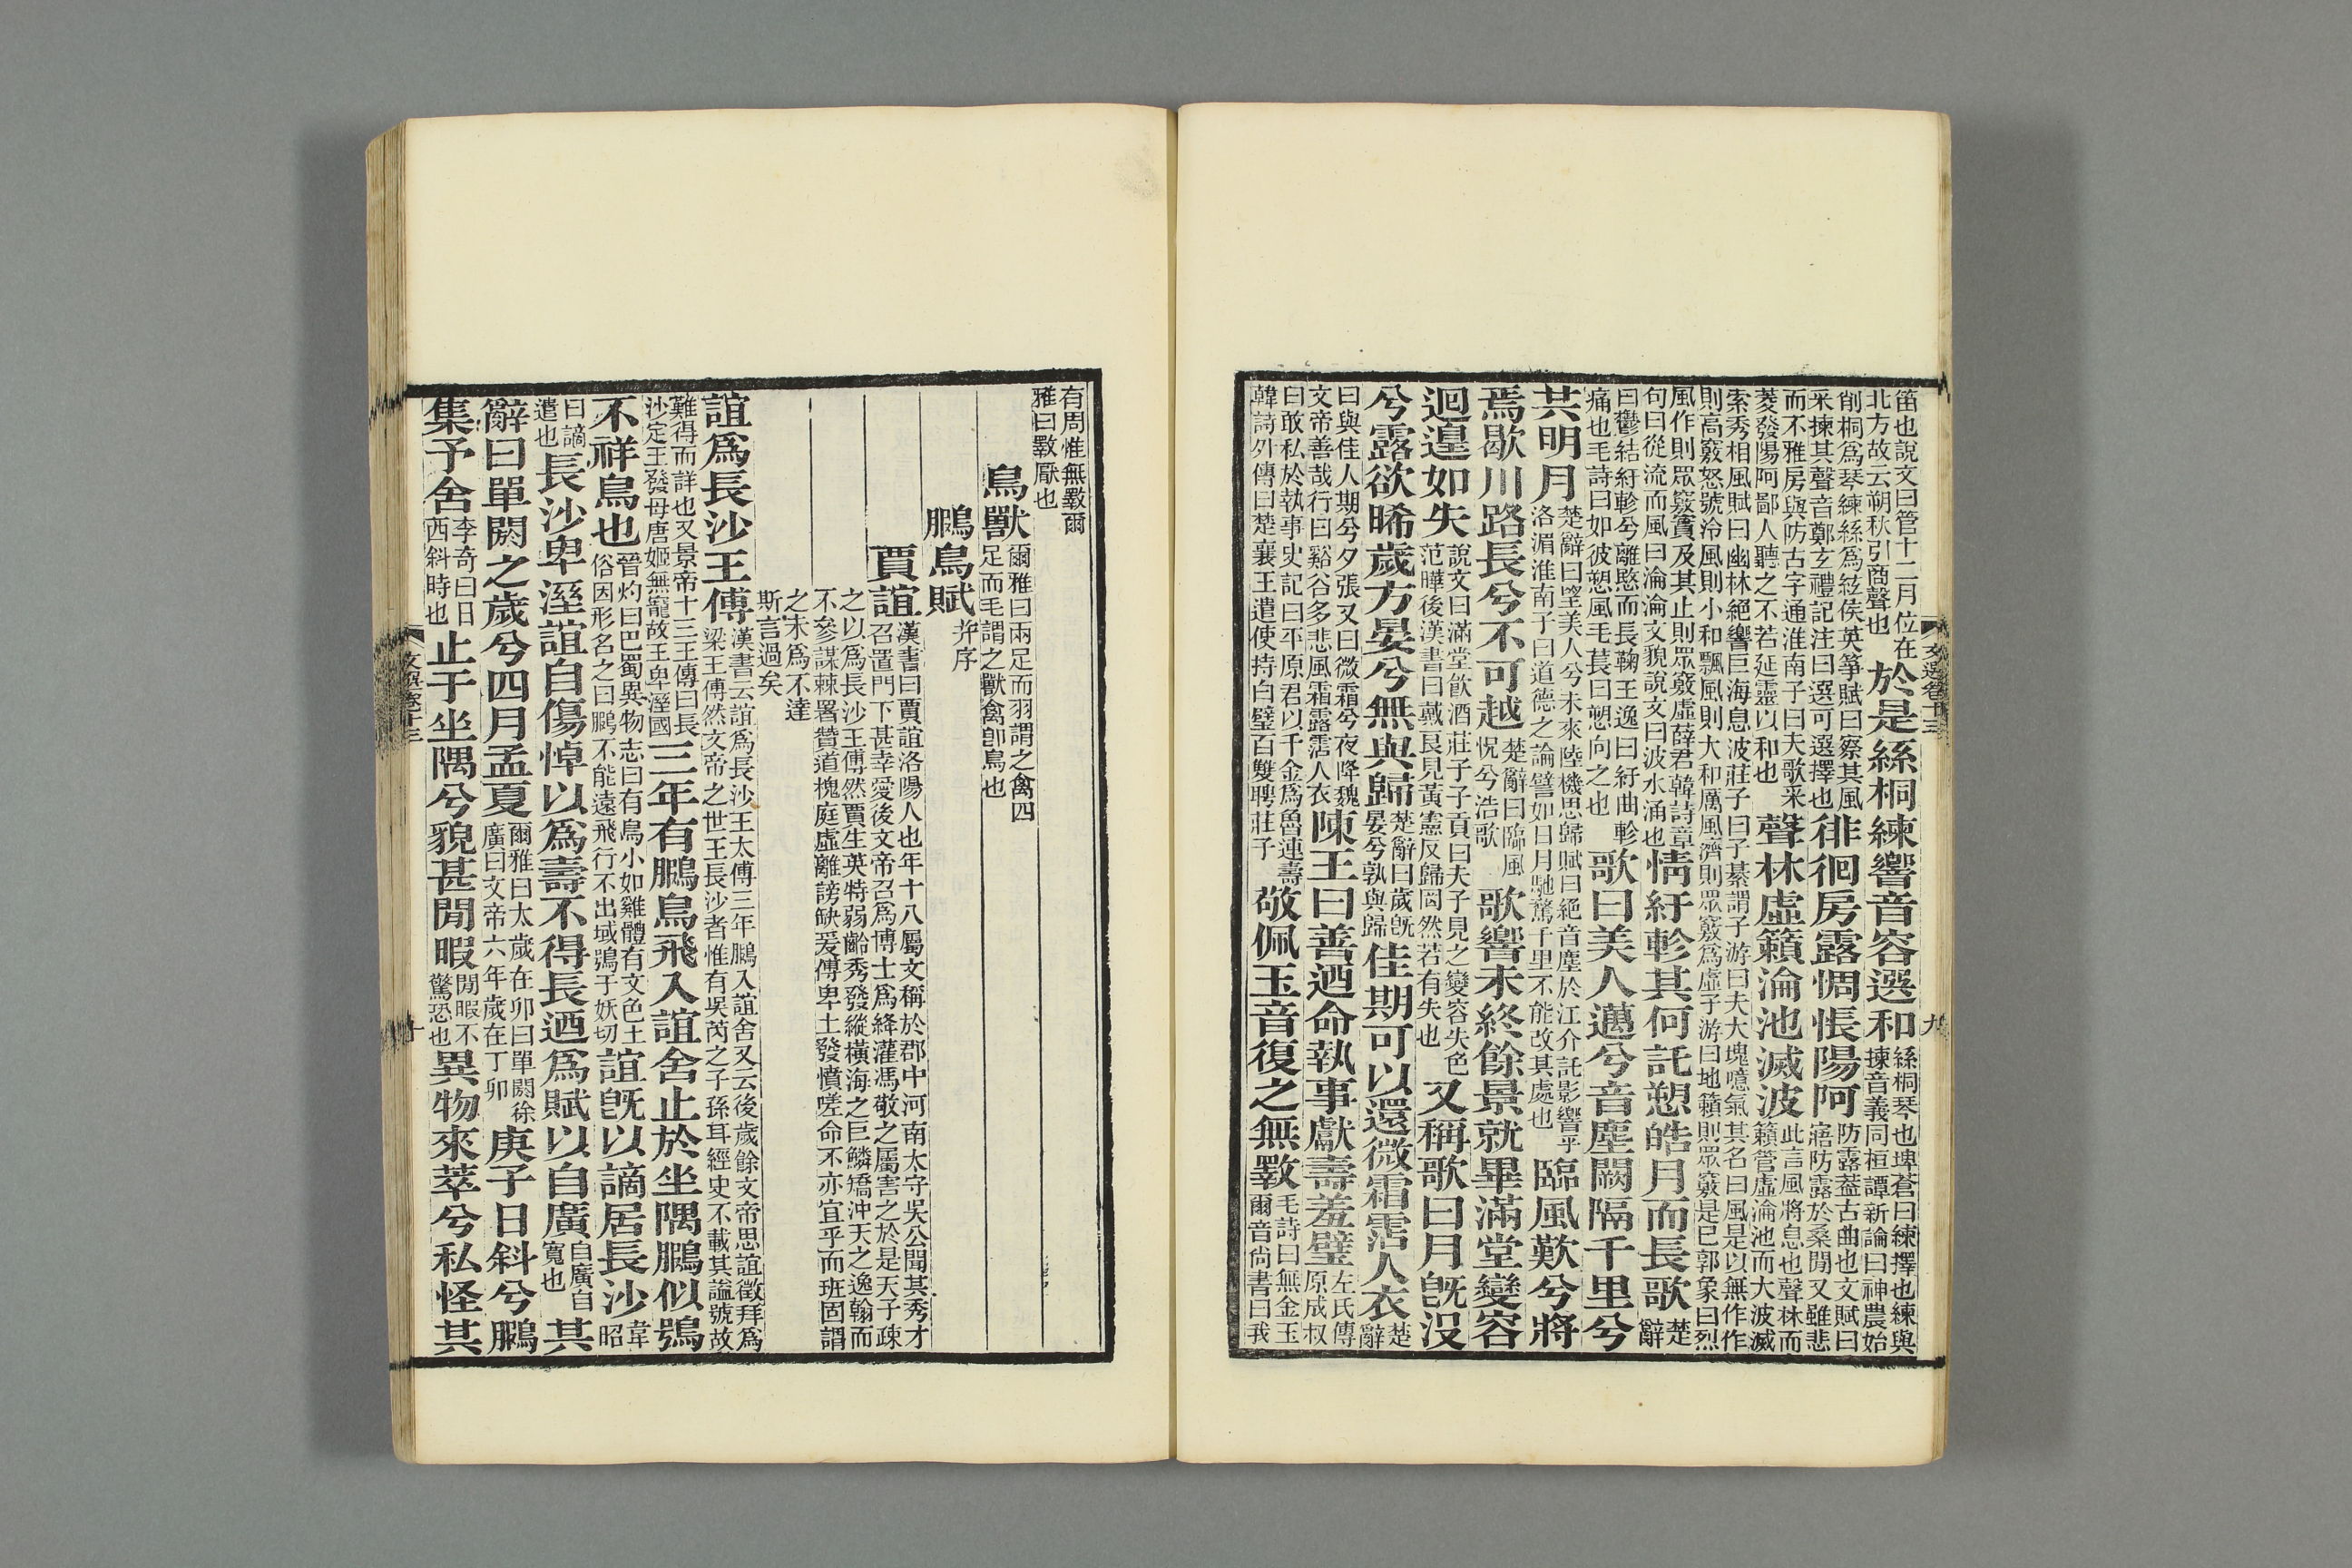 笛也說文曰管十二月位在北方故云朔秋引商聲也於是絲桐練響音容選和絲桐琴也埤蒼曰練擇也練與揀音義同桓譚新論曰神農始
削桐爲琴練絲爲絃侯英箏賦曰察其風采揀其聲音鄭玄禮記注曰選可選擇也徘徊房露惆悵陽阿防露葢古曲也文賦曰寤防露於桑閒又雖悲
而不雅房與防古字通淮南子曰夫歌采菱發陽阿鄙人聽之不若延靈以和也聲林虛籟淪池滅波此言風將息也聲林而籟管虛淪池而大波滅
索秀相風賦曰幽林絕響巨海息波莊子曰子綦謂子游曰夫大塊噫氣其名曰風是以無作作則高竅怒號泠風則小和飄風則大和厲風濟則眾竅爲虛子游曰地籟則眾竅是巳郭象曰烈
風作則眾竅實及其止則眾竅虛薛君韓詩章句曰從流而風曰淪淪文貌說文曰波水涌也情紆軫其何託愬皓月而長歌楚辭
曰鬱結紆軫兮離愍而長鞠王逸曰紆曲軫痛也毛詩曰如彼愬風毛萇曰愬向之也歌曰美人邁兮音塵闕隔千里兮
共明月楚辭曰望美人兮未來陸機思歸賦曰絕音塵於江介託影響乎洛湄淮南子曰道德之論譬如日月馳騖千里不能改其處也臨風歎兮將
焉歇川路長兮不可越楚辭曰臨風怳兮浩歌歌響未終餘景就畢滿堂變容
迴遑如失說文曰滿堂飲酒莊子子貢曰夫子見之變容失色范曄後漢書曰戴良見黃憲反歸罔然若有失也又稱歌曰月旣沒
兮露欲晞歲方晏兮無與歸楚辭曰歲旣晏兮孰與歸佳期可以還微霜霑人衣楚辭
曰與佳人期兮夕張又曰微霜兮夜降魏文帝善哉行曰谿谷多悲風霜露霑人衣陳王曰善迺命執事獻壽羞璧左氏傳原成叔
曰敢私於執事史記曰平原君以千金爲魯連壽韓詩外傳曰楚襄王遣使持白璧百雙聘莊子敬佩玉音復之無斁毛詩曰無金玉爾音尚書曰我
有周惟無斁爾雅曰斁厭也
鳥獸爾雅曰兩足而羽謂之禽四足而毛謂之獸禽卽鳥也
鵩鳥賦并序
賈誼漢書曰賈誼洛陽人也年十八屬文稱於郡中河南太守吳公聞其秀才召置門下甚幸愛後文帝召爲博士爲絳灌馮敬之屬害之於是天子疎
之以爲長沙王傅然賈生英特弱齡秀發縱橫海之巨鱗矯沖天之逸翰而不參謀棘署贊道槐庭虛離謗缺爰傅卑土發憤嗟命不亦宜乎而班固謂
之未爲不達斯言過矣
誼爲長沙王傅漢書云誼爲長沙王太傅三年鵩入誼舍又云後歲餘文帝思誼徵拜爲梁王傅然文帝之世王長沙者惟有吳芮之子孫耳經史不載其謚號故
難得而詳也又景帝十三王傳曰長沙定王發母唐姬無寵故王卑溼國三年有鵩鳥飛入誼舍止於坐隅鵩似鴞
不祥鳥也晉灼曰巴蜀異物志曰有鳥小如雞體有文色土俗因形名之曰鵩不能遠飛行不出域鴞于妖切誼旣以謫居長沙韋昭
曰謫遣也長沙卑溼誼自傷悼以爲壽不得長迺爲賦以自廣自廣自寬也其
辭曰單閼之歲兮四月孟夏爾雅曰太歲在卯曰單閼徐廣曰文帝六年歲在丁卯庚子日斜兮鵩
集予舍李奇曰日西斜時也止于坐隅兮貌甚閒暇閒暇不驚恐也異物來萃兮私怪其
文選卷十三
九
十